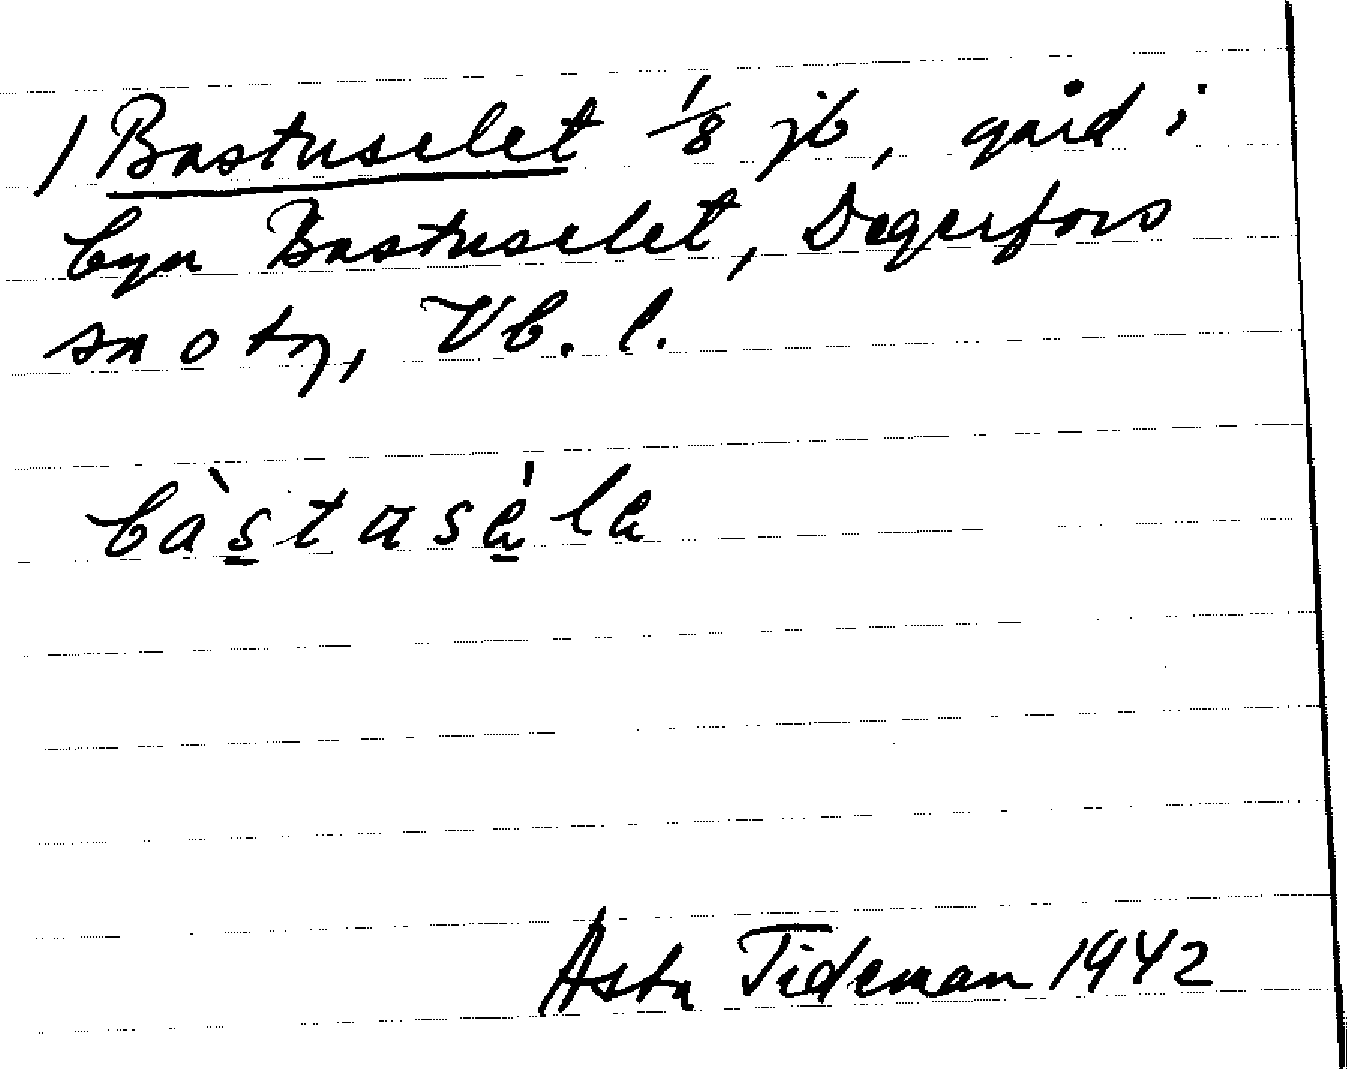 / Bastuselet 1/8 jb, gård i
byn Bastuselet, Degerfors
sn o tg, Vb. l.
bàs̲tasè̲le
Asta Tideman 1942